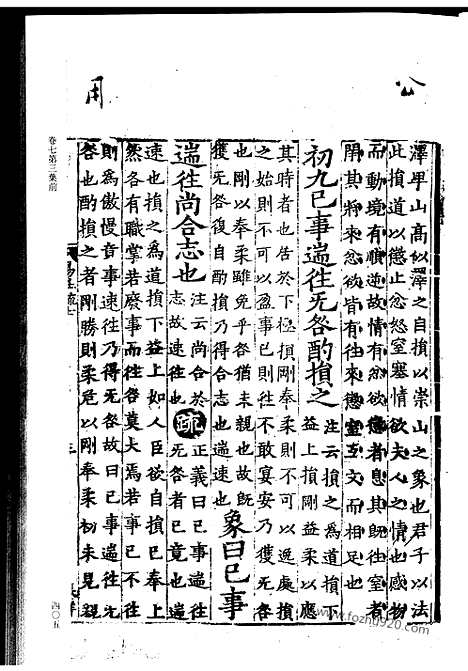 公
用
澤卑山高似澤之自損以崇山之象也君子以法
此損道以懲止忿怒窒塞情欲夫人之情也感物
而動境有順逆故情有忿欲懲者息其既往窒者
閉其將來忿欲皆有往來懲窒互文而相足也
初九已事遄往无咎酌損之注云損之為道損下
益上損剛益柔以應
其時者也居於下極損剛奉柔則不可以逸處損
之始則不可以盈事已則往不敢宴安乃獲无咎
也剛以奉柔雖免乎咎猶未親也故既
獲无咎復自酌損乃得合志也遄速也 象曰已事
遄往尚合志也注云尚合於
志故速往也疏正義曰已事遄往
无咎者已竟也遄
速也損之為道損下益上如人臣欲自損已奉上
然各有職掌若廢事而往咎莫大焉若事已不往
則為傲慢竟事速往乃得无咎故曰已事遄往无
咎也酌損之者剛勝則柔危以剛奉柔初未見親
易注疏七
三
卷七第三葉前
四〇五
www.fozhg920.com